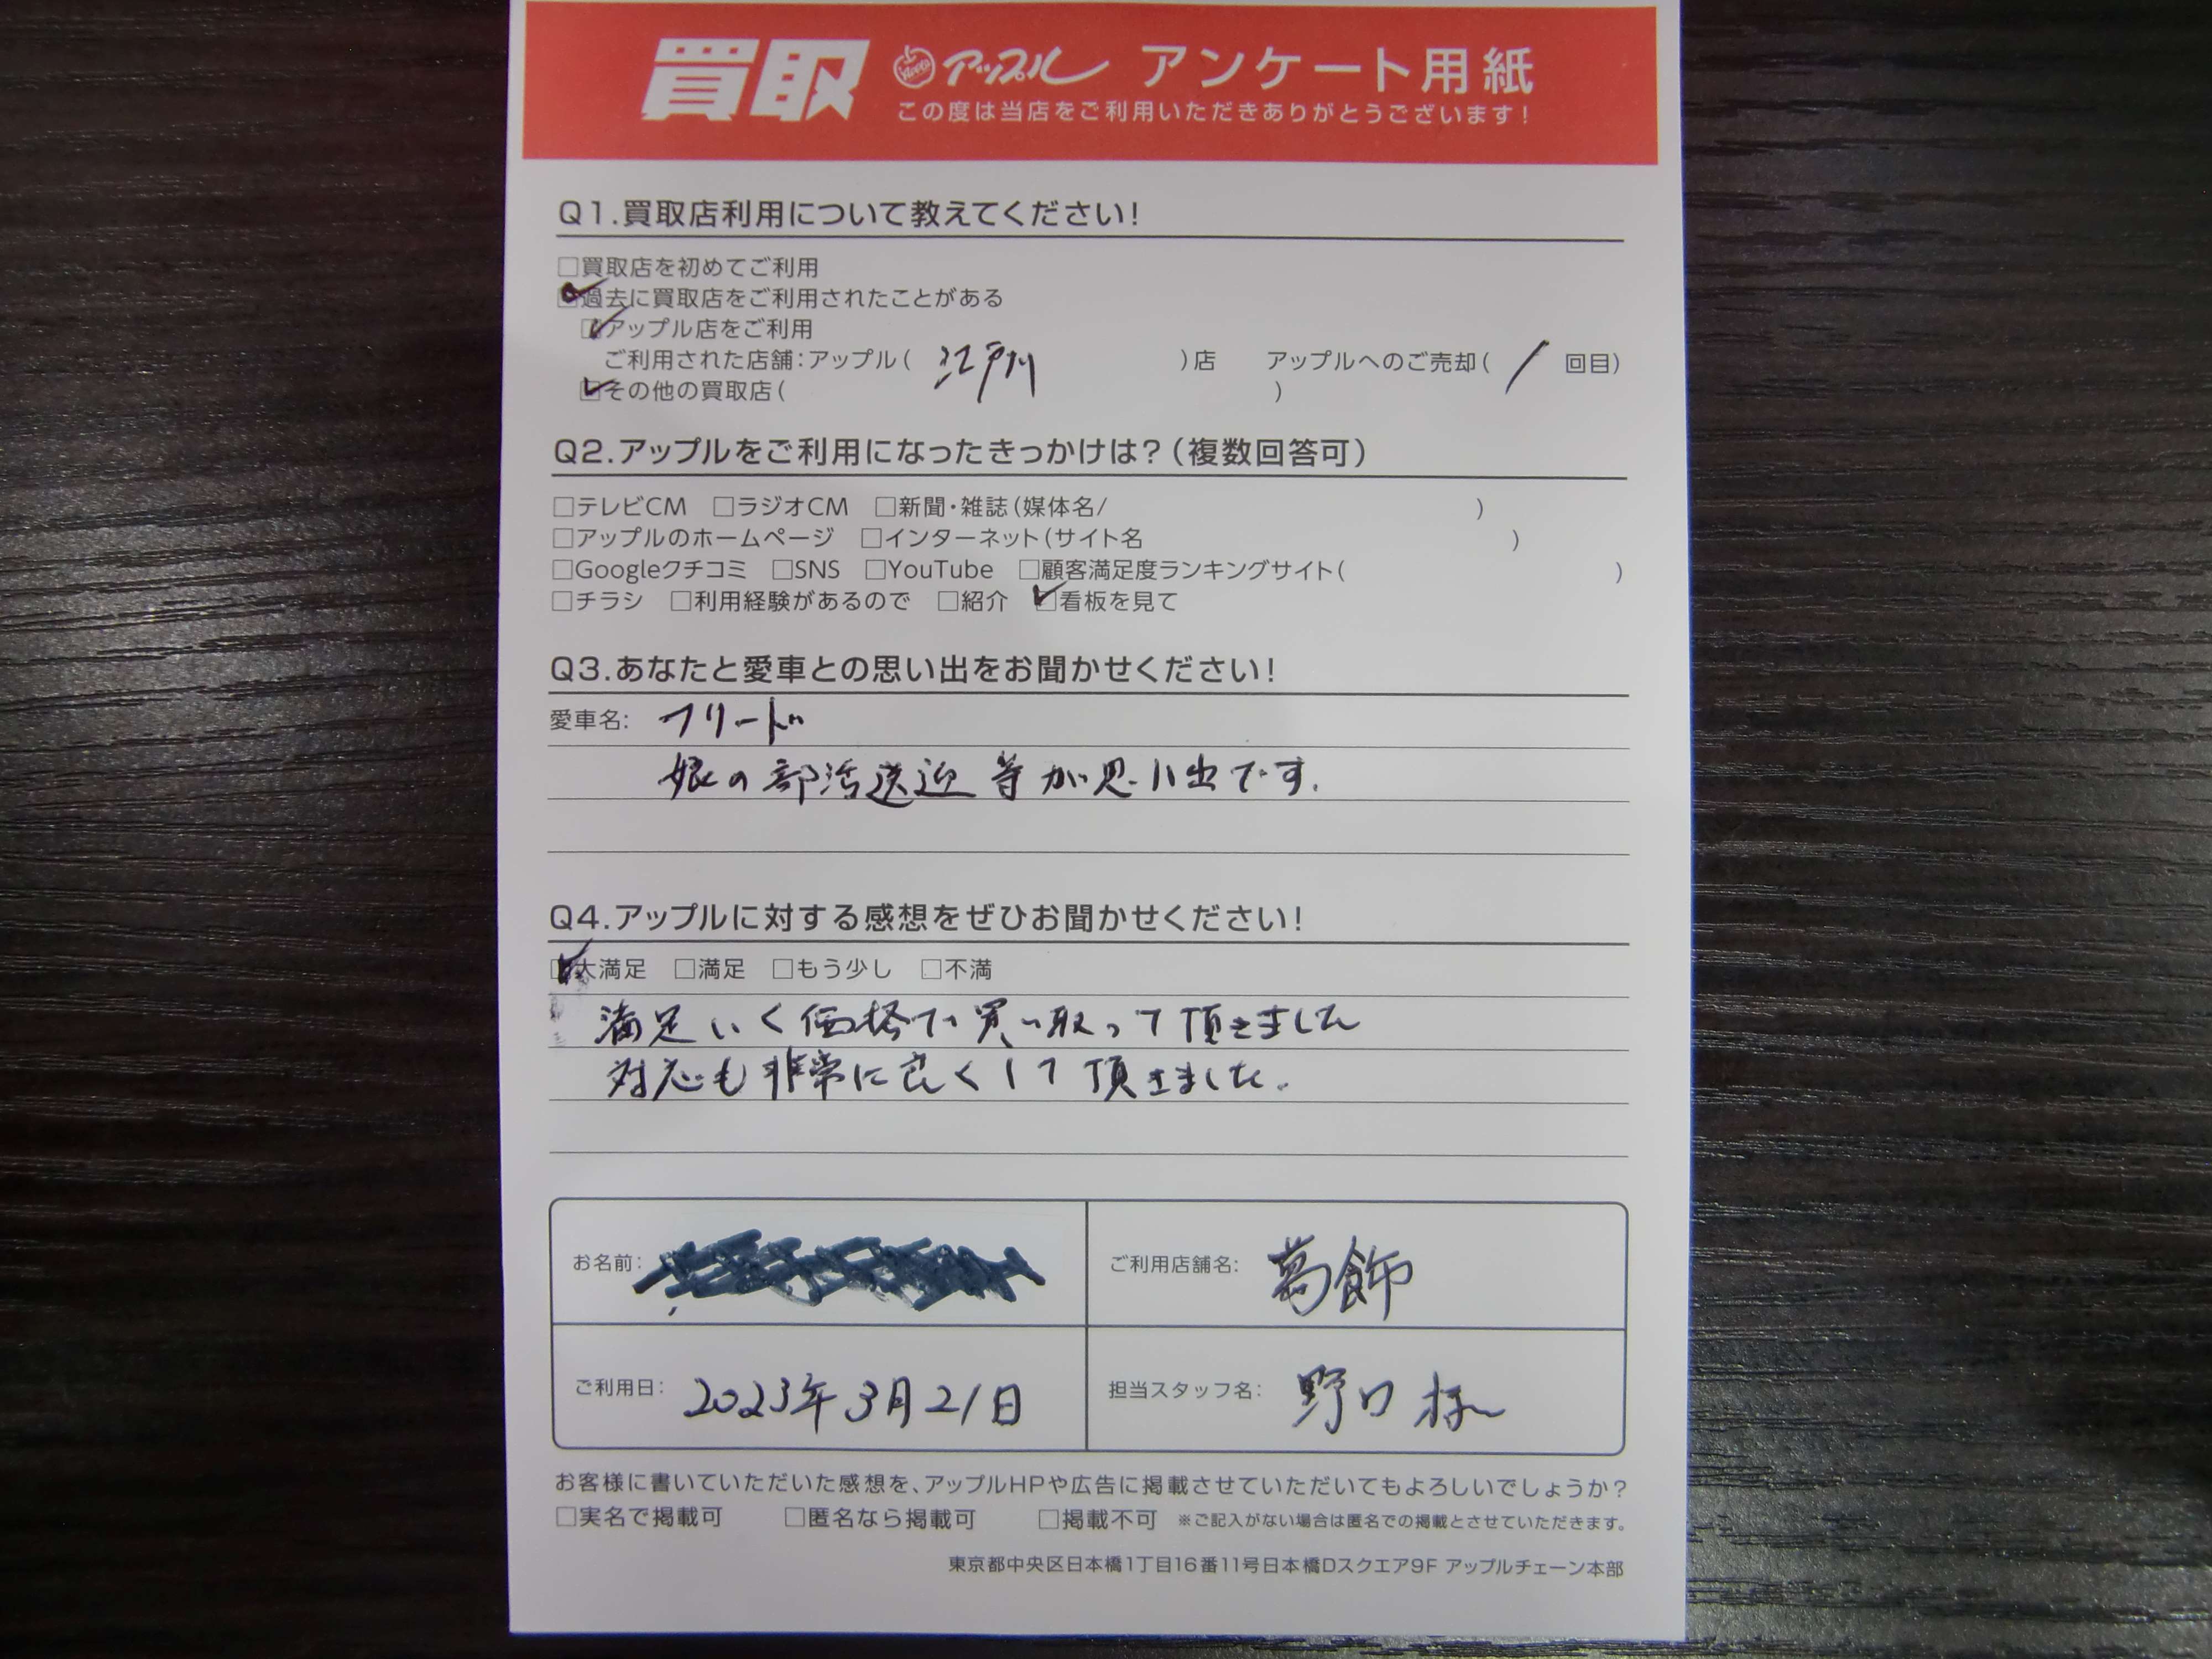 買取 アップル アンケート用紙
この度は当店をご利用いただきありがとうございます!
Q1.買取店利用について教えてください!
□買取店を初めてご利用
☑過去に買取店をご利用されたことがある
☑アップル店をご利用
ご利用された店舗:アップル( 江戸川 )店 アップルへのご売却( 1 回目)
☑その他の買取店( )
Q2.アップルをご利用になったきっかけは?(複数回答可)
□テレビCM □ラジオCM □新聞・雑誌(媒体名/ )
□アップルのホームページ □インターネット(サイト名 )
□Googleクチコミ □SNS □YouTube □顧客満足度ランキングサイト( )
□チラシ □利用経験があるので □紹介 ☑看板を見て
Q3.あなたと愛車との思い出をお聞かせください!
愛車名: フリード
娘の部活送迎等が思い出です.
Q4.アップルに対する感想をぜひお聞かせください!
☑大満足 □満足 □もう少し □不満
満足いく価格で買い取って頂きました
対応も非常に良くして頂きました。
お名前: ご利用店舗名: 葛飾
ご利用日: 2023年3月21日 担当スタッフ名: 野口 様
お客様に書いていただいた感想を、アップルHPや広告に掲載させていただいてもよろしいでしょうか?
□実名で掲載可 □匿名なら掲載可 □掲載不可 ※ご記入がない場合は匿名での掲載とさせていただきます。
東京都中央区日本橋1丁目16番11号日本橋Dスクエア9F アップルチェーン本部